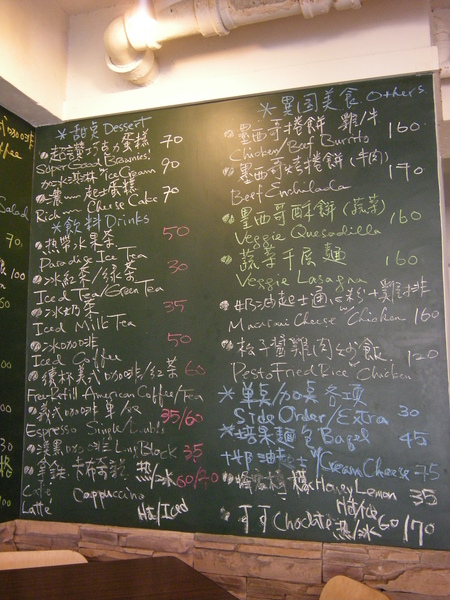 咖啡
Salad
70
100
格
*甜桌 Dessert
蛋糕 70
Super Good Brownies
Ice Cream 90
起士蛋糕
Rich Cheese Cake 70
*飲料 Drinks
熱帶水果茶 50
Paradise Ice Tea
冰紅茶/綠茶 30
Iced Tea/Green Tea
冰奶茶 35
Iced Milk Tea
冰咖啡 50
Iced Coffee
續杯美式咖啡/紅茶 60
Free Refill American Coffee/Tea
35/60
Espresso Simple/
35
拿鐵 卡布奇諾 熱/冰 60/70
Cafe Cappuccino
Latte Hot/Iced
*異国美食 Others
墨西哥捲餅 雞/牛 160
Chicken/Beef Burrito
墨西哥烤捲餅(牛肉) 170
Beef Enchilada
墨西哥酥餅(蔬菜) 160
Veggie Quesadilla
蔬菜千层麵 160
Veggie Lasagna
奶油起士通心粉+雞排
Macaroni Cheese w/Chicken 160
松子醬雞肉炒飯 120
Pesto Fried Rice w/Chicken
*單桌/加桌各項
Side Order/Extra 30
*培果麵包 Bagel 45
+奶油起士 w/Cream Cheese 75
Honey Lemon 35
Hot/Ice
可可 Choclate 熱/冰 60/70